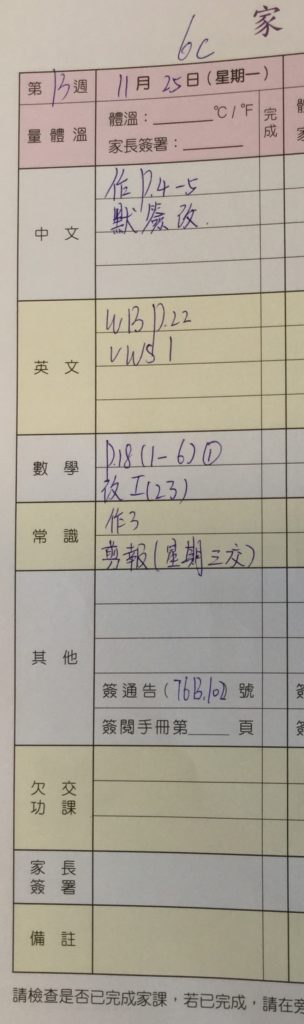 6C
家
第13週 11月25日(星期一)
量體溫 體溫：______°C/°F 完成
家長簽署：______
中文 作P.4-5
默簽改.
英文 WB P.22
VWS 1
數學 P.18(1-6)①
改I(23)
常識 作3
剪報(星期三交)
其他
簽通告(76B,102)號
簽閱手冊第____頁
欠交功課
家長簽署
備註
請檢查是否已完成家課，若已完成，請在旁